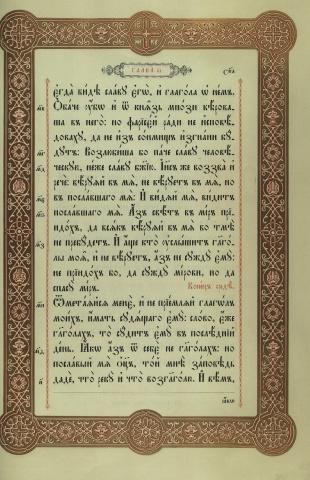 Глава в҃і
є҆гда̀ ви́дѣ сла́вꙋ є҆гѡ̀, и҆ глаго́ла ѡ҆ не́мъ.
Ѻ҆ба́че ᲂу҆́бѡ и҆ ѿ кнѧ̑зь мно́зи вѣ́рова-
ша въ него̀: но фарїсє́й ра́ди не и҆сповѣ́-
довахꙋ, да не и҆з̾ со́нмищъ и҆згна́ни бꙋ́-
дꙋтъ: Возлюби́ша бо па́че сла́вꙋ человѣ́-
ческꙋю, не́же сла́вꙋ бж҃їю. І҆и҃съ же воззва̀ и҆
речѐ: вѣ́рꙋѧй въ мѧ̀, не вѣ́рꙋетъ въ мѧ̀, но
въ посла́вшаго мѧ̀: И҆ ви́дѧй мѧ̀, ви́дитъ
посла́вшаго мѧ̀. А҆́зъ свѣ́тъ въ мі́ръ прї-
идо́хъ, да всѧ́къ вѣ́рꙋѧй въ мѧ̀ во тмѣ̀
не пребꙋ́детъ. И҆ а҆́ще кто̀ ᲂу҆слы́шитъ гл҃го́-
лы моѧ̑, и҆ не вѣ́рꙋетъ, а҆́зъ не сꙋждꙋ̀ є҆мꙋ̀:
не прїидо́хъ бо, да сꙋждꙋ̀ мі́рови, но да
сп҃сꙋ̀ мі́ръ.
Коне́цъ средѣ̀.
Ѿмета́ѧйсѧ менє̀, и҆ не прїе́млѧй глаго́лъ
мои́хъ, и҆́мать сꙋдѧ́щаго є҆мꙋ̀: сло́во, є҆́же
гл҃го́лахъ, то̀ сꙋ́дитъ є҆мꙋ̀ въ послѣ́днїй
де́нь. Ꙗ҆́кѡ а҆́зъ ѿ себє̀ не гл҃го́лахъ: но
посла́вый мѧ̀ ѻ҆ц҃ъ, то́й мнѣ̀ за́повѣдь
дадѐ, что̀ рекꙋ̀ и҆ что̀ возгл҃го́лю. И҆ вѣ́мъ,
ꙗ҆́кѡ